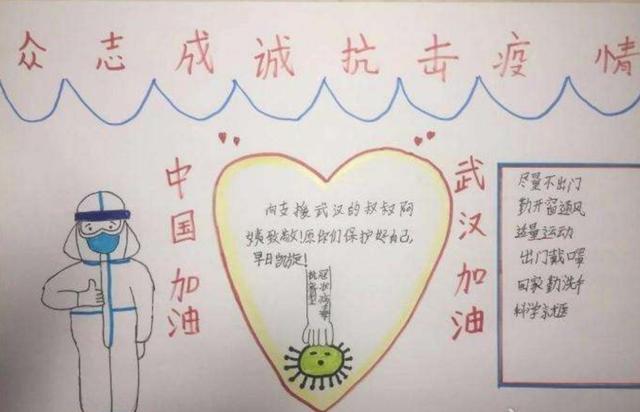 众志成诚抗击疫情
中国加油
向支援武汉的叔叔阿
姨致敬!愿你们保护好自己,
早日凯旋!
抗新型
冠状病毒
武汉加油
尽量不出门
勤开窗通风
适量运动
出门戴口罩
回家勤洗手
科学就医